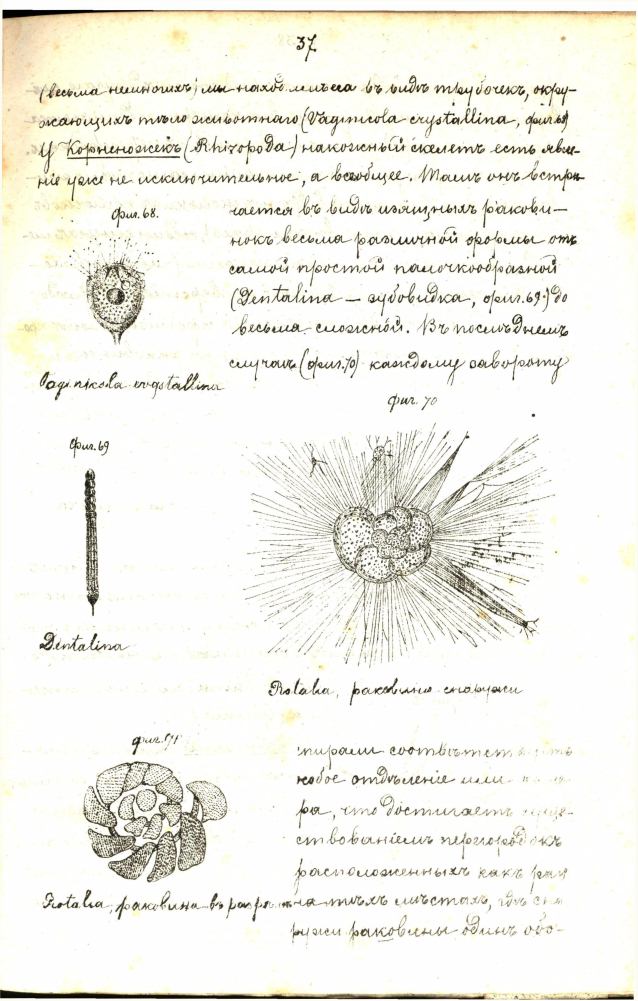 37
(весьма немногихъ) мы находимъ въ видѣ трубочекъ, окру-
жающихъ тѣло животнаго (Vaginicola crystallina, фиг. 68)
У Корненожекъ (Rhizopoda) накожный скелетъ есть явле-
ніе уже не исключительное, а всеобщее. Тамъ онъ встрѣ-
чается въ видѣ изящныхъ ракови-
нокъ весьма различной формы отъ
самой простой палочкообразной
(Dentalina — зубовидка, фиг. 69) до
весьма сложной. Въ послѣднемъ
случаѣ (фиг. 70) каждому завороту
фиг. 68.
Vaginikola crystallina
фиг. 70
фиг. 69
Dentalina
Rotalia, раковина снаружи
фиг. 71
Rotalia, раковина въ разрѣзѣ
спирали соотвѣтствуетъ
особое отдѣленіе или
ра, что достигается суще-
ствованіемъ перегородокъ
расположенныхъ какъ разъ
на тѣхъ мѣстахъ, гдѣ сна
ружи раковины одинъ обо-